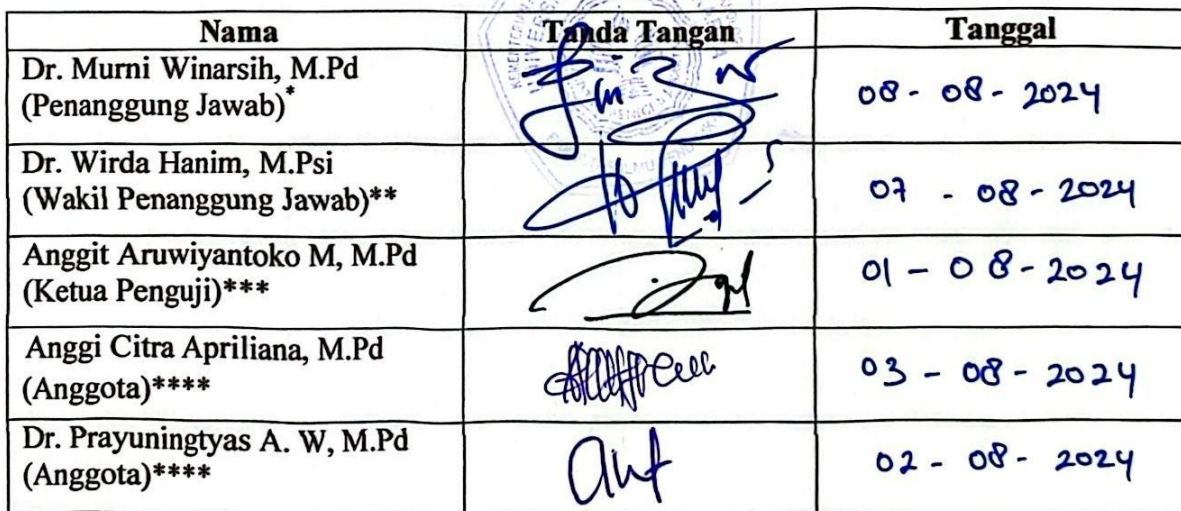 Nama Tanda Tangan Tanggal
Dr. Murni Winarsih, M.Pd
(Penanggung Jawab)* 08 - 08 - 2024
Dr. Wirda Hanim, M.Psi
(Wakil Penanggung Jawab)** 07 - 08 - 2024
Anggit Aruwiyantoko M, M.Pd
(Ketua Penguji)*** 01 - 08 - 2024
Anggi Citra Apriliana, M.Pd
(Anggota)**** 03 - 08 - 2024
Dr. Prayuningtyas A. W, M.Pd
(Anggota)**** 02 - 08 - 2024